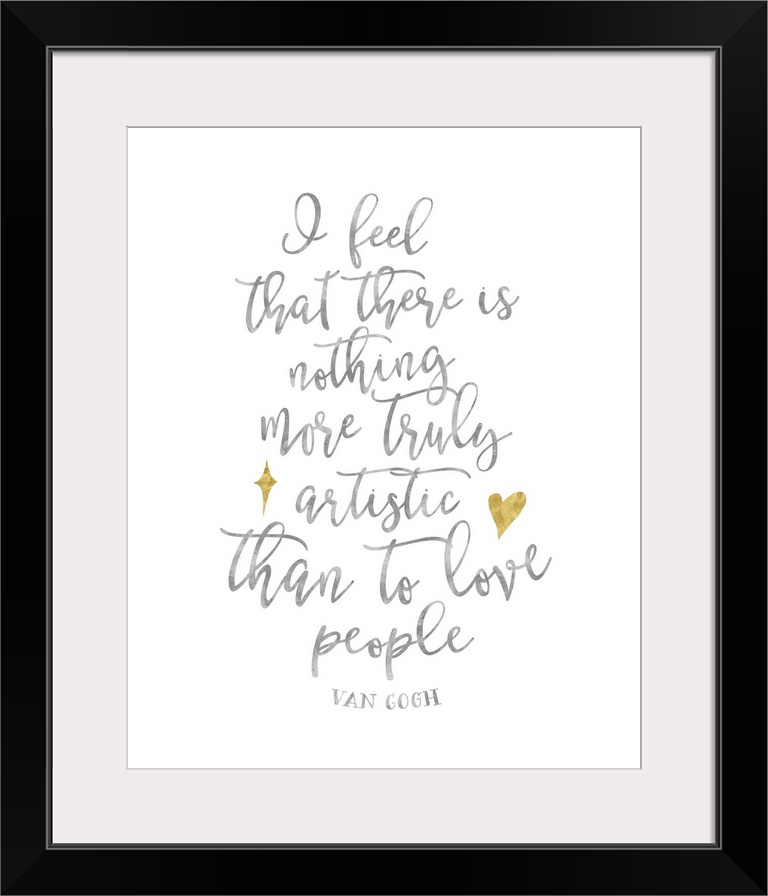 I feel
that there is
nothing
more truly
artistic
than to love
people
VAN GOGH